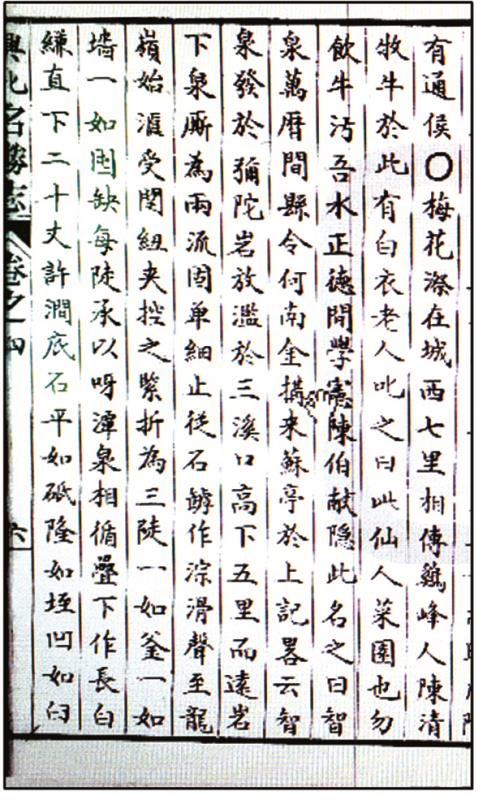 有通侯〇梅花漈在城西七里相傳鷄峰人陳清
牧牛於此有白衣老人叱之曰此仙人菜園也勿
飲牛汚吾水正德間學憲陳伯献隠此名之曰智
泉萬曆間縣令何南金搆来蘇亭於上記畧云智
泉發於彌陀岩放濫於三溪口高下五里而遠岩
下泉厮為兩流固单細止從石罅作淙滑聲至龍
嶺始滙受関紐夾控之緊折為三陡一如釜一如
墻一如囷缺每陡承以呀潭泉相循疊下作長白
縑直下二十丈許澗底石平如砥隆如垤凹如臼
興化名勝志 卷之四 六